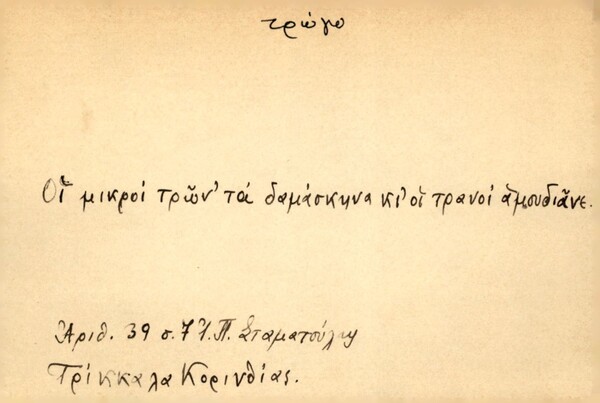 τρώγω
Οἱ μικροί τρῶν' τά δαμάσκηνα κι' οἱ τρανοί αἱμουδιᾶνε.
Ἀριθ. 39 σ. 7 Ἰ. Π. Σταματούλης
Τρίκκαλα Κορινθίας.